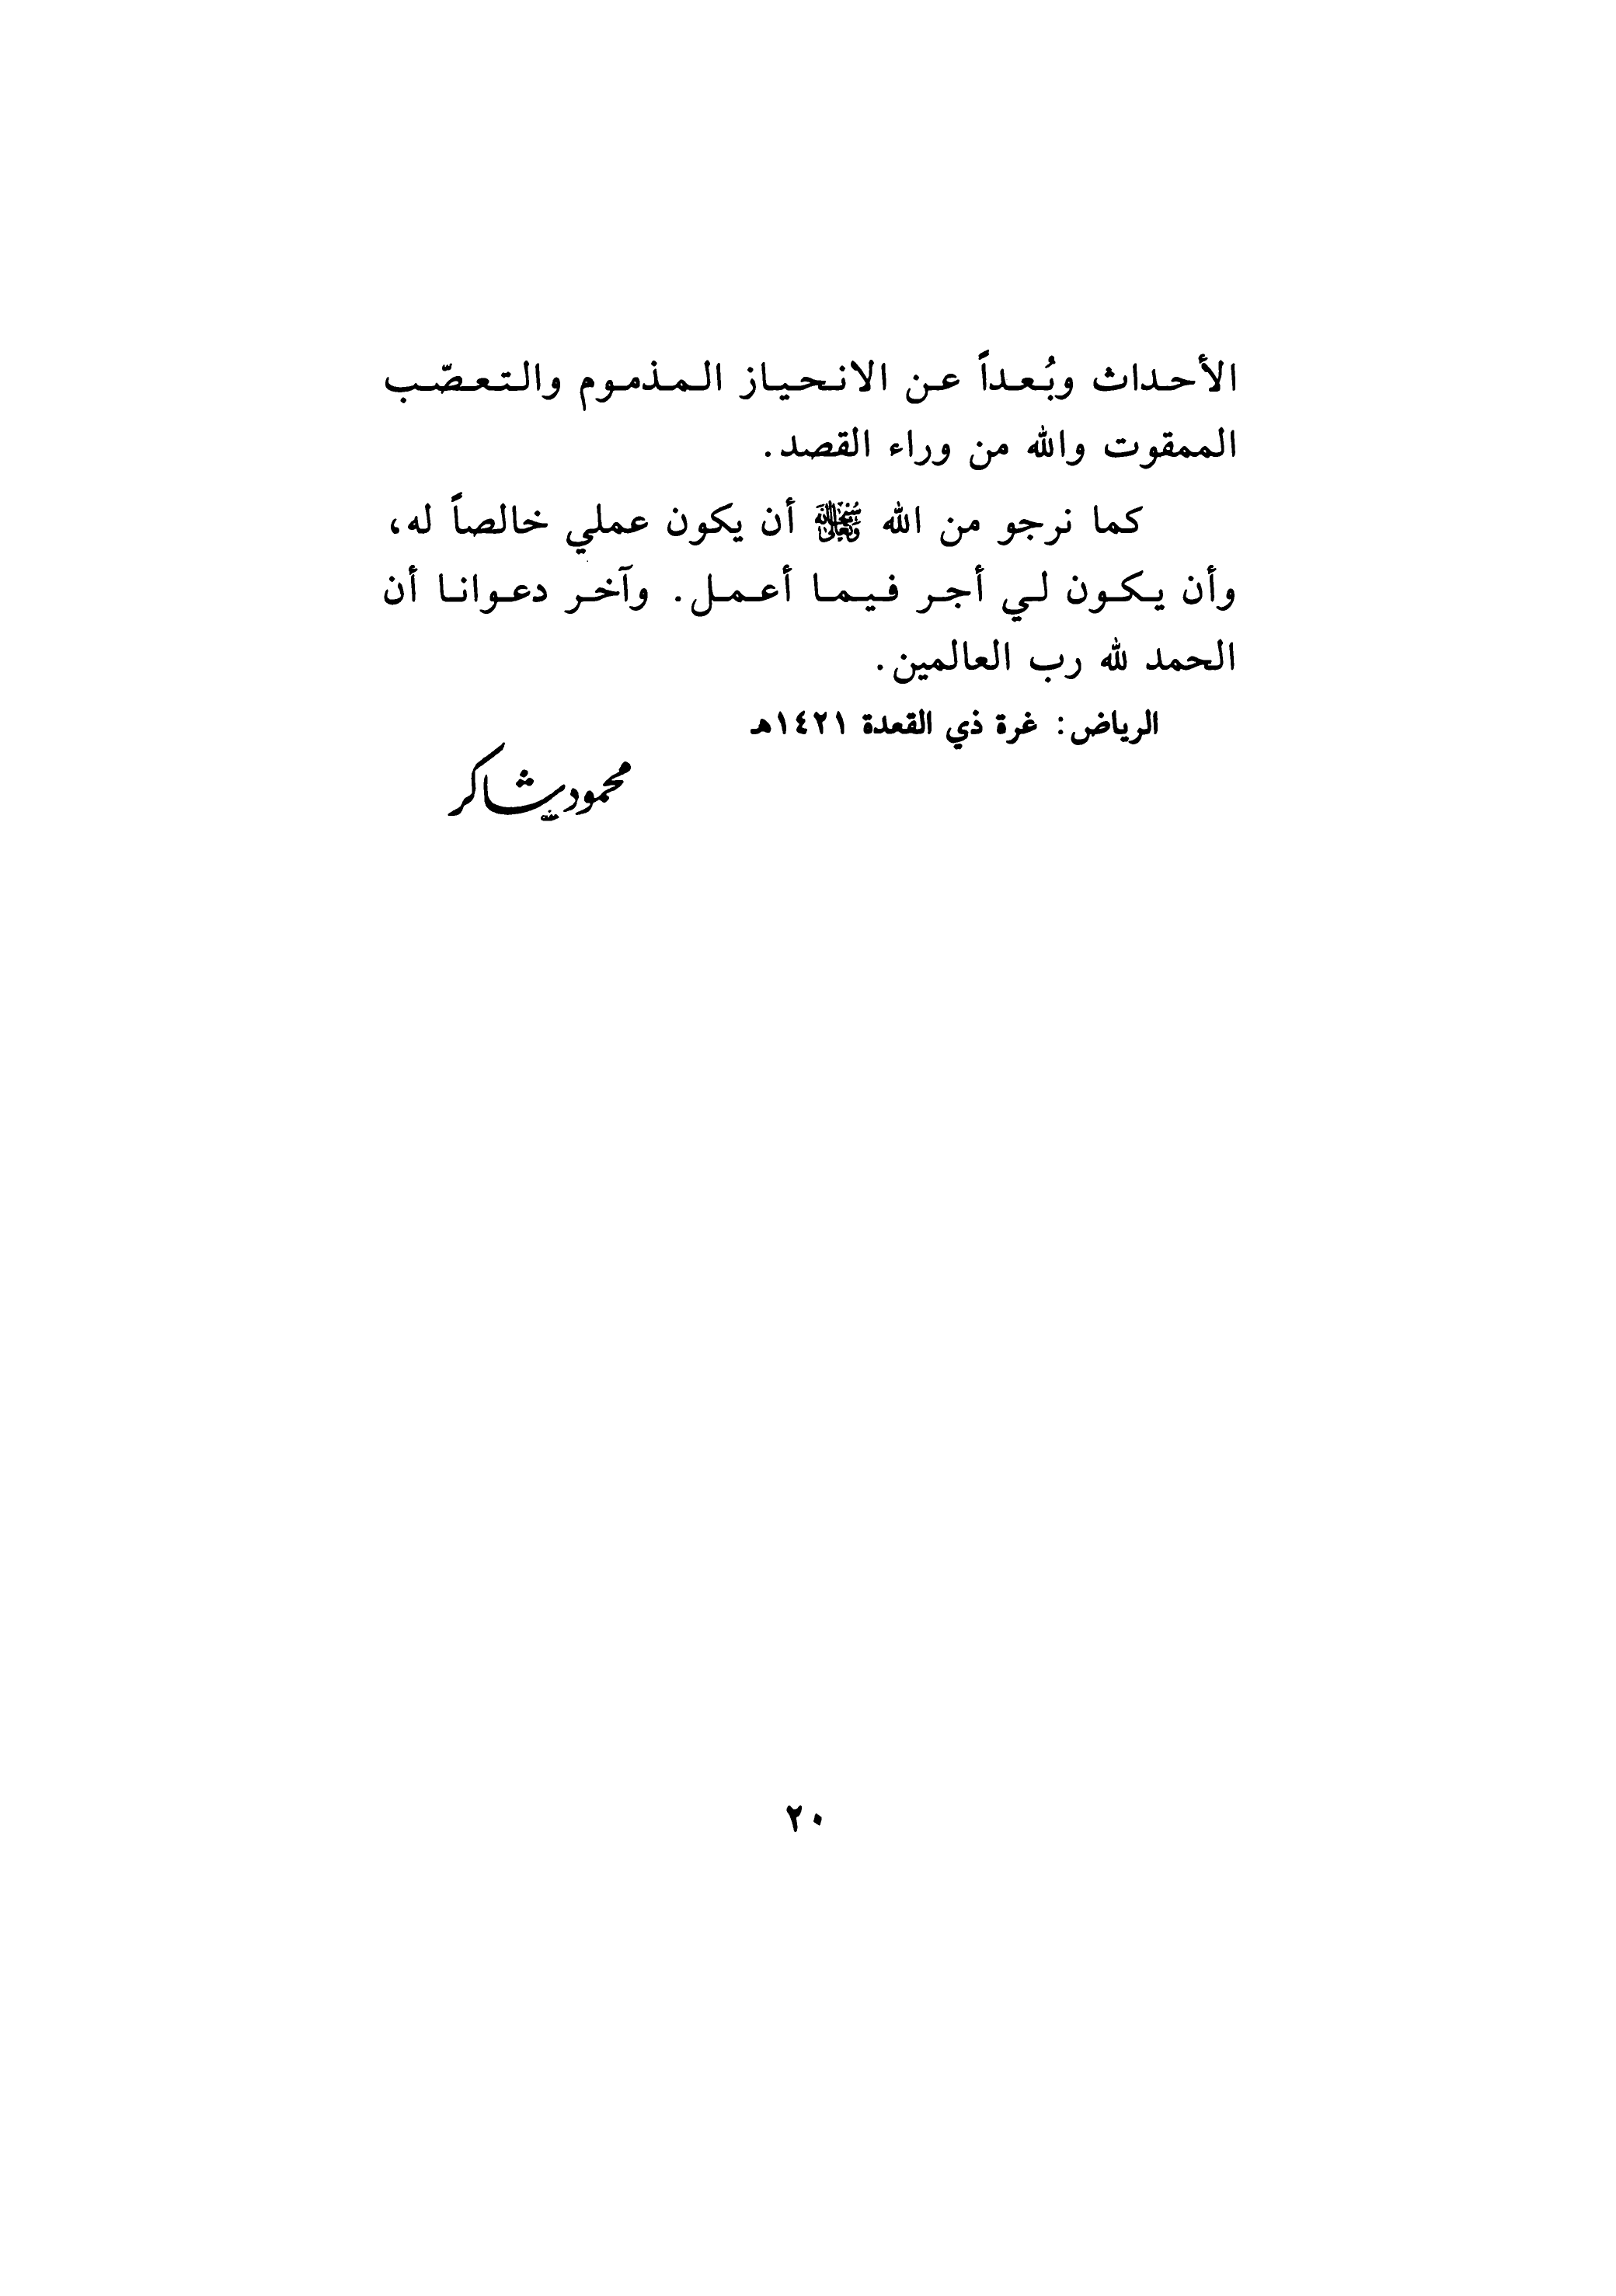 الأحداث وبُعداً عن الانحياز المذموم والتعصّب
الممقوت والله من وراء القصد.
كما نرجو من الله سبحانه وتعالى أن يكون عملي خالصاً له،
وأن يكون لي أجر فيما أعمل. وآخر دعوانا أن
الحمد لله رب العالمين.
الرياض: غرة ذي القعدة ١٤٢١هـ
محمود شاكر
٢٠